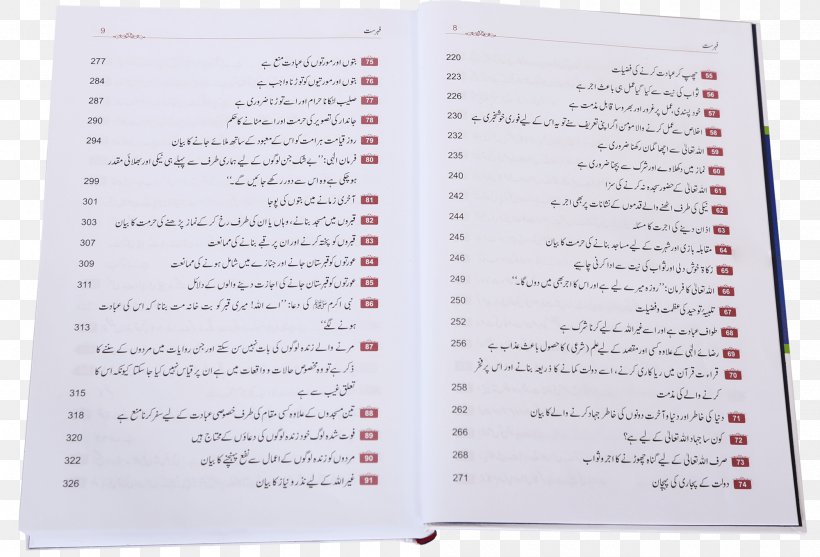 8
فہرست
55 چھپ کر عبادت کرنے کی فضیلت 220
56 ثواب کی نیت سے کیا گیا عمل ہی باعث اجر ہے 223
57 خود پسندی، عمل پر غرور اور بھروسا قابل مذمت ہے 226
58 اخلاص سے عمل کرنے والا مومن اگر اپنی تعریف سنے تو یہ اس کے لیے فوری خوشخبری ہے 230
59 اللہ تعالیٰ سے اچھا گمان رکھنا ضروری ہے 232
60 نماز میں دکھلاوے اور شرک سے بچنا ضروری ہے 235
61 اللہ تعالیٰ کے حضور سجدہ نہ کرنے کی سزا 240
62 نیکی کی طرف اٹھنے والے قدموں کے نشانات پر بھی اجر ہے 242
63 اذان دینے کی اجرت کا مسئلہ 244
64 مقابلہ بازی اور شہرت کے لیے مساجد بنانے کی حرمت کا بیان 245
65 زکاۃ خوش دلی اور ثواب کی نیت سے ادا کرنی چاہیے 246
66 اللہ تعالیٰ کا فرمان: ’’روزہ میرے لیے ہے اور اس کا اجر بھی میں دوں گا۔‘‘ 249
67 تلبیہ توحید کی عظمت و فضیلت 250
68 طواف عبادت ہے اور اسے غیر اللہ کے لیے کرنا شرک ہے 252
69 رضائے الٰہی کے علاوہ کسی اور مقصد کے لیے علم (شرعی) کا حصول باعث عذاب ہے 256
70 قراءت قرآن میں ریاکاری کرنے، اسے دولت کمانے کا ذریعہ بنانے اور اس پر فخر
کرنے والے کی مذمت 258
71 دنیا کی خاطر اور دنیا و آخرت دونوں کی خاطر جہاد کرنے والے کا بیان 262
72 کون سا جہاد اللہ تعالیٰ کے لیے ہے؟ 266
73 صرف اللہ تعالیٰ کے لیے گناہ چھوڑنے کا اجر و ثواب 268
74 دولت کے پجاری کی پہچان 271
9
فہرست
75 بتوں اور مورتوں کی عبادت منع ہے 277
76 بتوں اور مورتیوں کو توڑنا واجب ہے 284
77 صلیب لٹکانا حرام اور اسے توڑنا ضروری ہے 287
78 جاندار کی تصویر کی حرمت اور اسے مٹانے کا حکم 290
79 روز قیامت ہر امت کو اس کے معبود کے ساتھ ملائے جانے کا بیان 294
80 فرمان الٰہی: ’’بے شک جن لوگوں کے لیے ہماری طرف سے پہلے ہی نیکی اور بھلائی مقدر
ہو چکی ہے وہ اس سے دور رکھے جائیں گے۔‘‘ 299
81 آخری زمانے میں بتوں کی پوجا 301
82 قبروں میں مسجد بنانے، وہاں یا ان کی طرف رخ کر کے نماز پڑھنے کی حرمت کا بیان 303
83 قبروں کو پختہ کرنے اور ان پر قبے بنانے کی ممانعت 307
84 عورتوں کو قبرستان جانے اور جنازے میں شامل ہونے کی ممانعت 309
85 عورتوں کو قبرستان جانے کی اجازت دینے والوں کے دلائل 311
86 نبی اکرم ﷺ کی دعا: ’’اے اللہ! میری قبر کو بت خانہ مت بنانا کہ اس کی عبادت
ہونے لگے‘‘ 313
87 مرنے والے زندہ لوگوں کی بات نہیں سن سکتے اور جن روایات میں مردوں کے سننے کا
ذکر ہے تو وہ مخصوص حالات و واقعات میں ہے ان پر قیاس نہیں کیا جا سکتا کیونکہ اس کا
تعلق غیب سے ہے 315
88 تین مسجدوں کے علاوہ کسی مقام کی طرف خصوصی عبادت کے لیے سفر کرنا منع ہے 318
89 فوت شدہ لوگ خود زندہ لوگوں کی دعاؤں کے محتاج ہیں 320
90 مردوں کو زندہ لوگوں کے اعمال سے نفع پہنچنے کا بیان 322
91 غیر اللہ کے لیے نذر و نیاز کا بیان 326